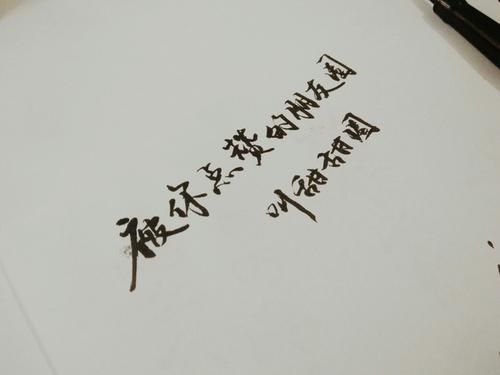 被你点赞的朋友圈
叫甜甜圈